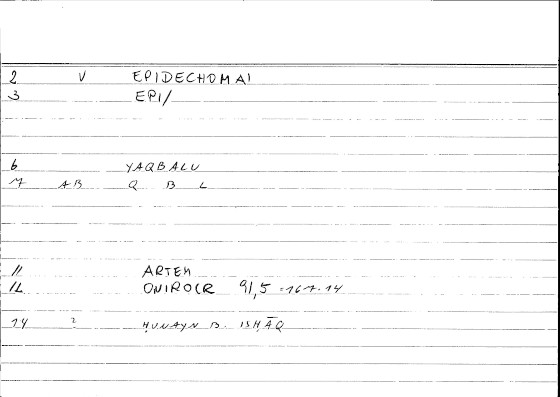 2 V EPIDECHOMAI
3 EPI/
6 YAQBALU
7 AB Q B L
11 ARTEM
12 ONIROCR 91,5 = 167.14
14 ? ḤUNAYN B. ISḤĀQ